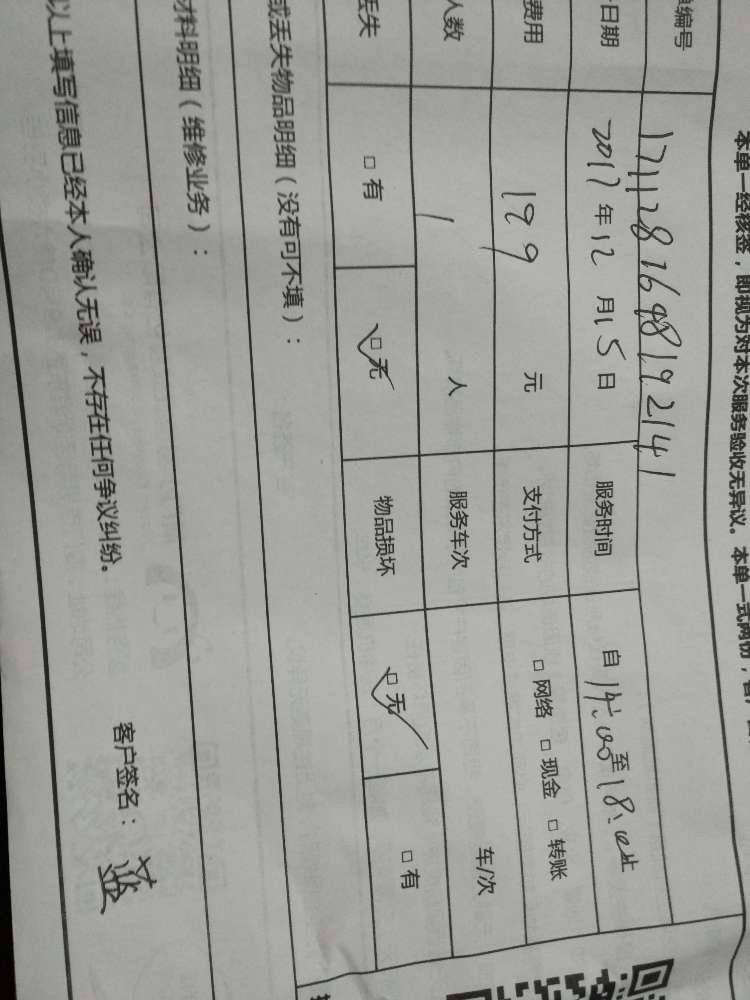 本单一经核签，即视为对本次服务验收无异议。本单一式两份，客户
单编号 1711281698192141
日期 2017年12月15日 服务时间 自14:00至18:00止
费用 199 元 支付方式 □ 网络 □ 现金 □ 转账
人数 1 人 服务车次 车/次
丢失 □ 有 □ 无 物品损坏 □ 无 □ 有
或丢失物品明细（没有可不填）：
材料明细（维修业务）：
以上填写信息已经本人确认无误，不存在任何争议纠纷。
客户签名：